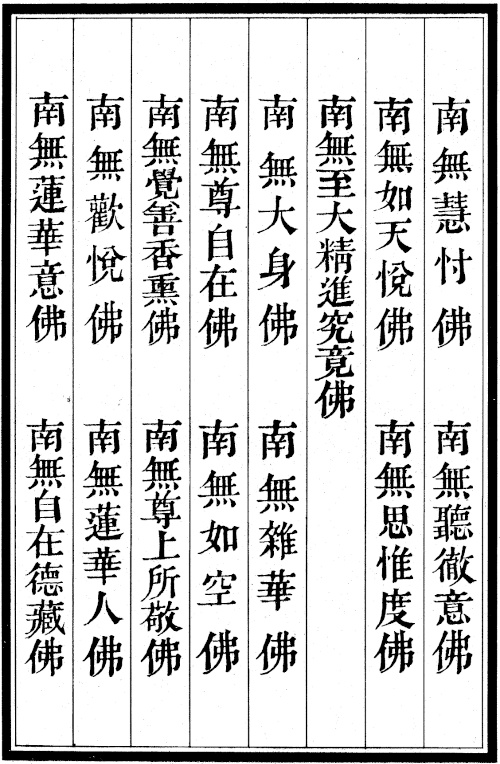 南無慧忖佛　南無聽徹意佛
南無如天悅佛　南無思惟度佛
南無至大精進究竟佛
南無大身佛　南無雜華佛
南無尊自在佛　南無如空佛
南無覺善香熏佛　南無尊上所敬佛
南無歡悅佛　南無蓮華人佛
南無蓮華意佛　南無自在德藏佛